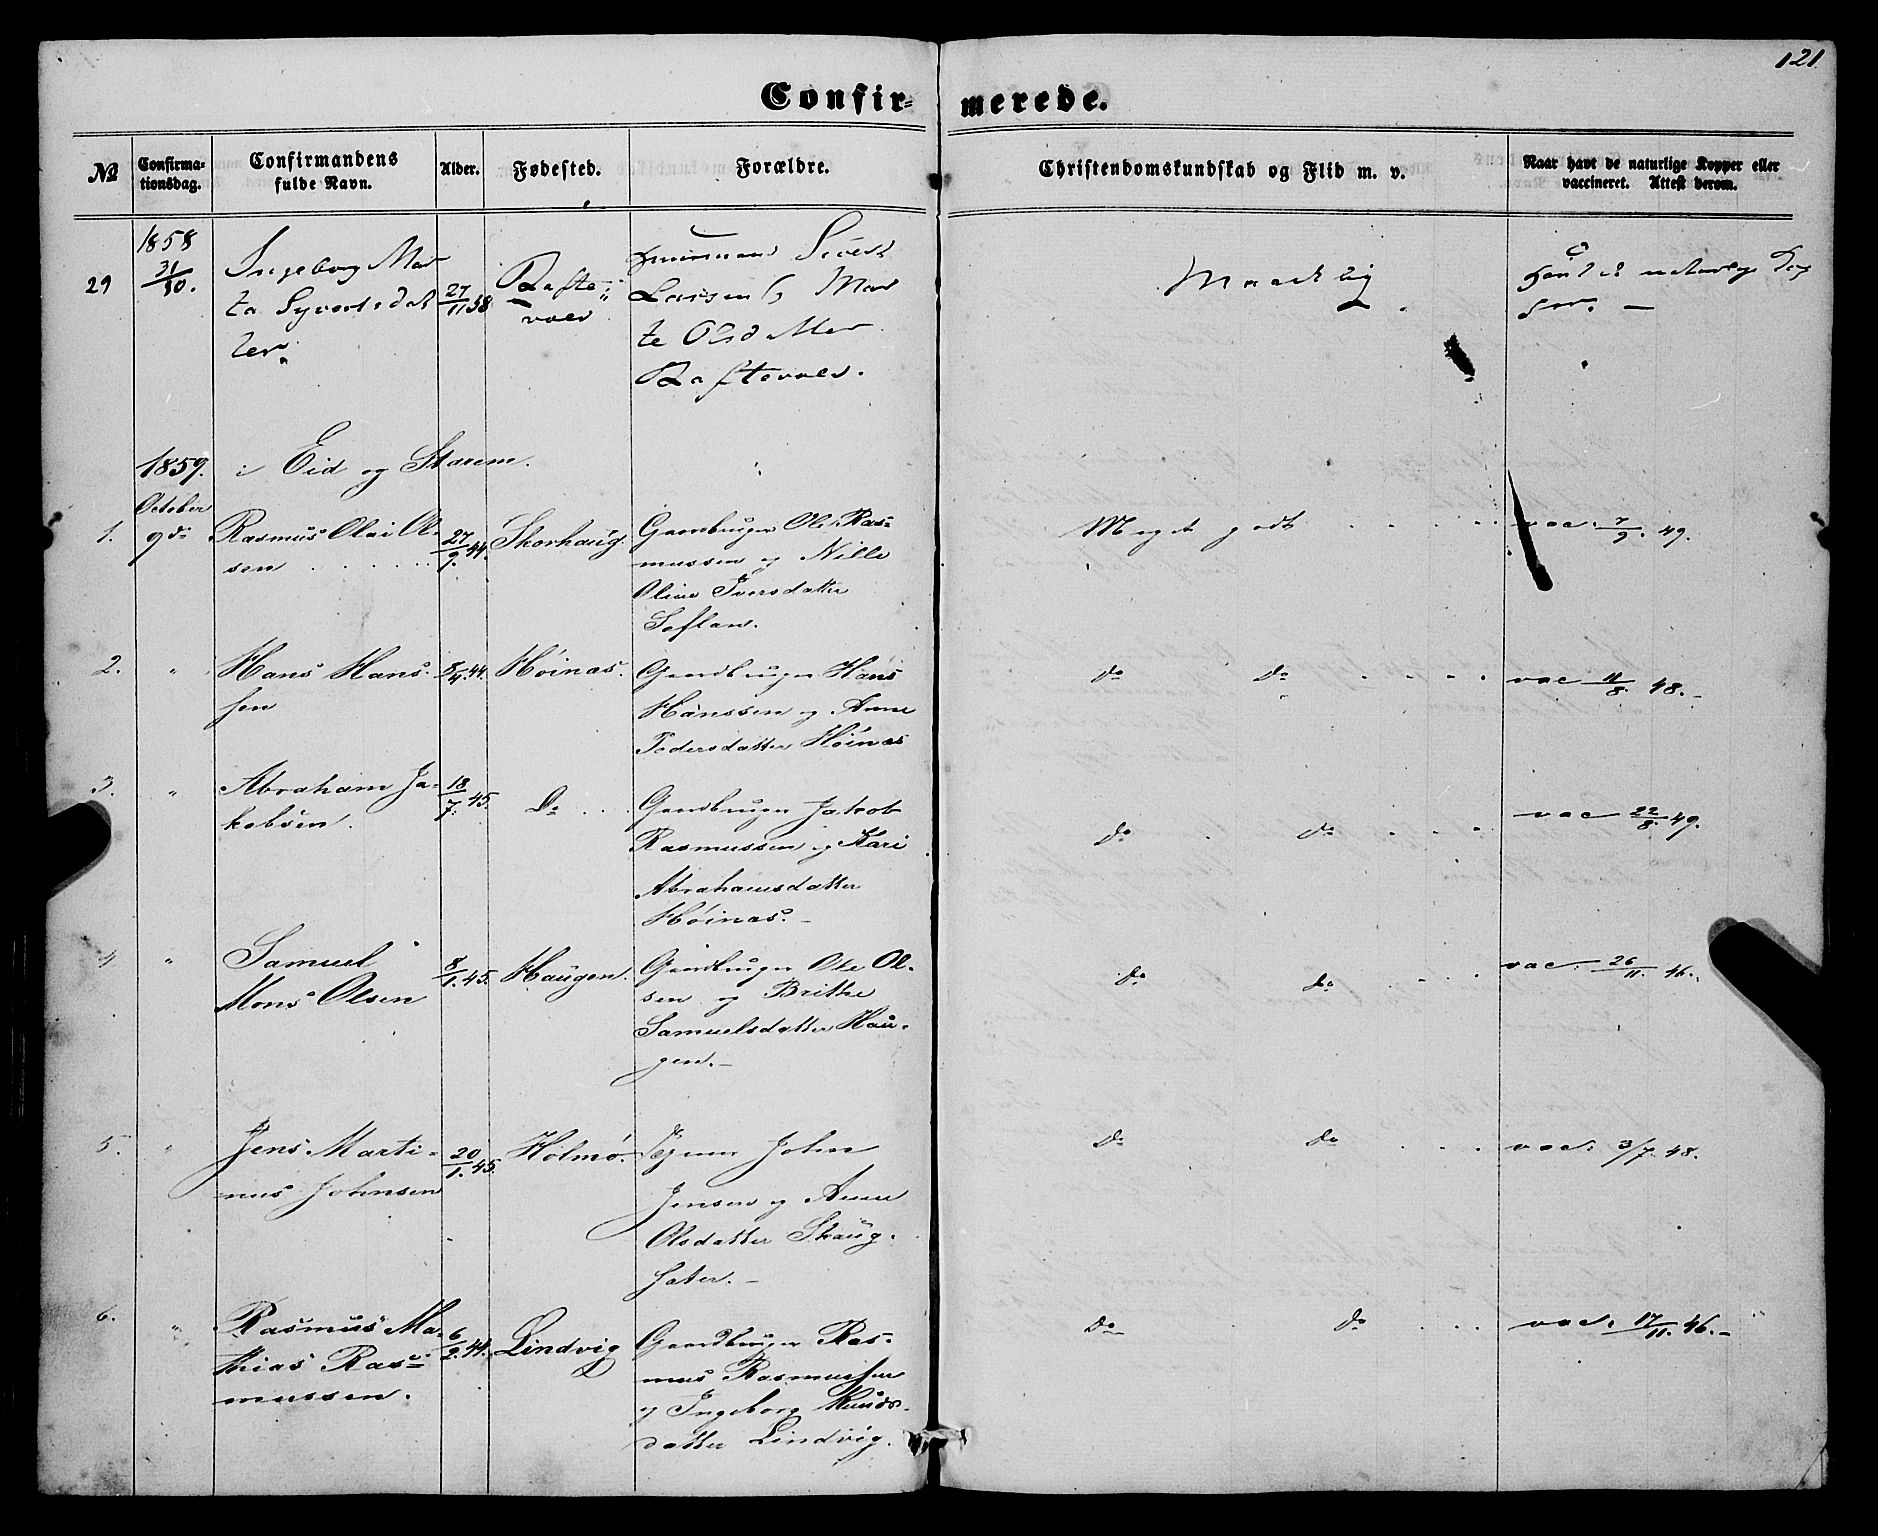 121
Confir- merede.
№
Confirma-
tionsdag.
Confirmandens
fulde Navn.
Alder.
Fødested.
Forældre.
Christendomskundskab og Flid m. v.
Naar havt de naturlige Kopper eller
vaccineret. Attest derom.
29
1858
31/10.
Ingeborg Mar
ta Syvertsdat
ter
27/11 38
Rafte
vold
Sivert
Larsen Mar
te Olsd
Raftevold.
Maadelig
havt de naturlige Kop
per. —
1859. i Eid og Starem.
October
1.
9de
Rasmus Olai Ol-
sen
27/9. 44.
Skorhaug.
Gaardbruger Ole Ras-
mussen og Nille
Oline Iversdatter
Sefland.
Meget godt
vac. 7/9. 49.
2.
"
Hans Hans-
sen
8/4. 44.
Høinæs.
Gaardbruger Hans
Hanssen og Anne
Pedersdatter Høinæs
Do Do
vac 11/8. 48.-
3.
"
Abraham Ja-
kobsen.
18/7. 45.
Do
Gaardbruger Jakob
Rasmussen og Kari
Abrahamsdatter
Høinæs. -
Do Do
vac 22/8. 49.
4
"
Samuel
Mons Olsen
8/1. 45.
Haugen.
Gaardbruger Ole Ol-
sen og Brithe
Samuelsdatter Hau-
gen. -
Do Do
vac. 26/11. 46.
5.
"
Jens Marti-
nus Johnsen
20/1. 45.
Holmø.
John
Jensen og Anne
Olsdatter Skaug-
sæter. -
Do Do
vac. 3/7. 48.
6.
"
Rasmus Ma-
thias Ras-
mussen.
6/2. 44.
Lindvig
Gaardbruger Ras-
mus Rasmussen
og Ingeborg Knuds-
datter Lindvig.
Do Do
vac. 17/11. 46. -